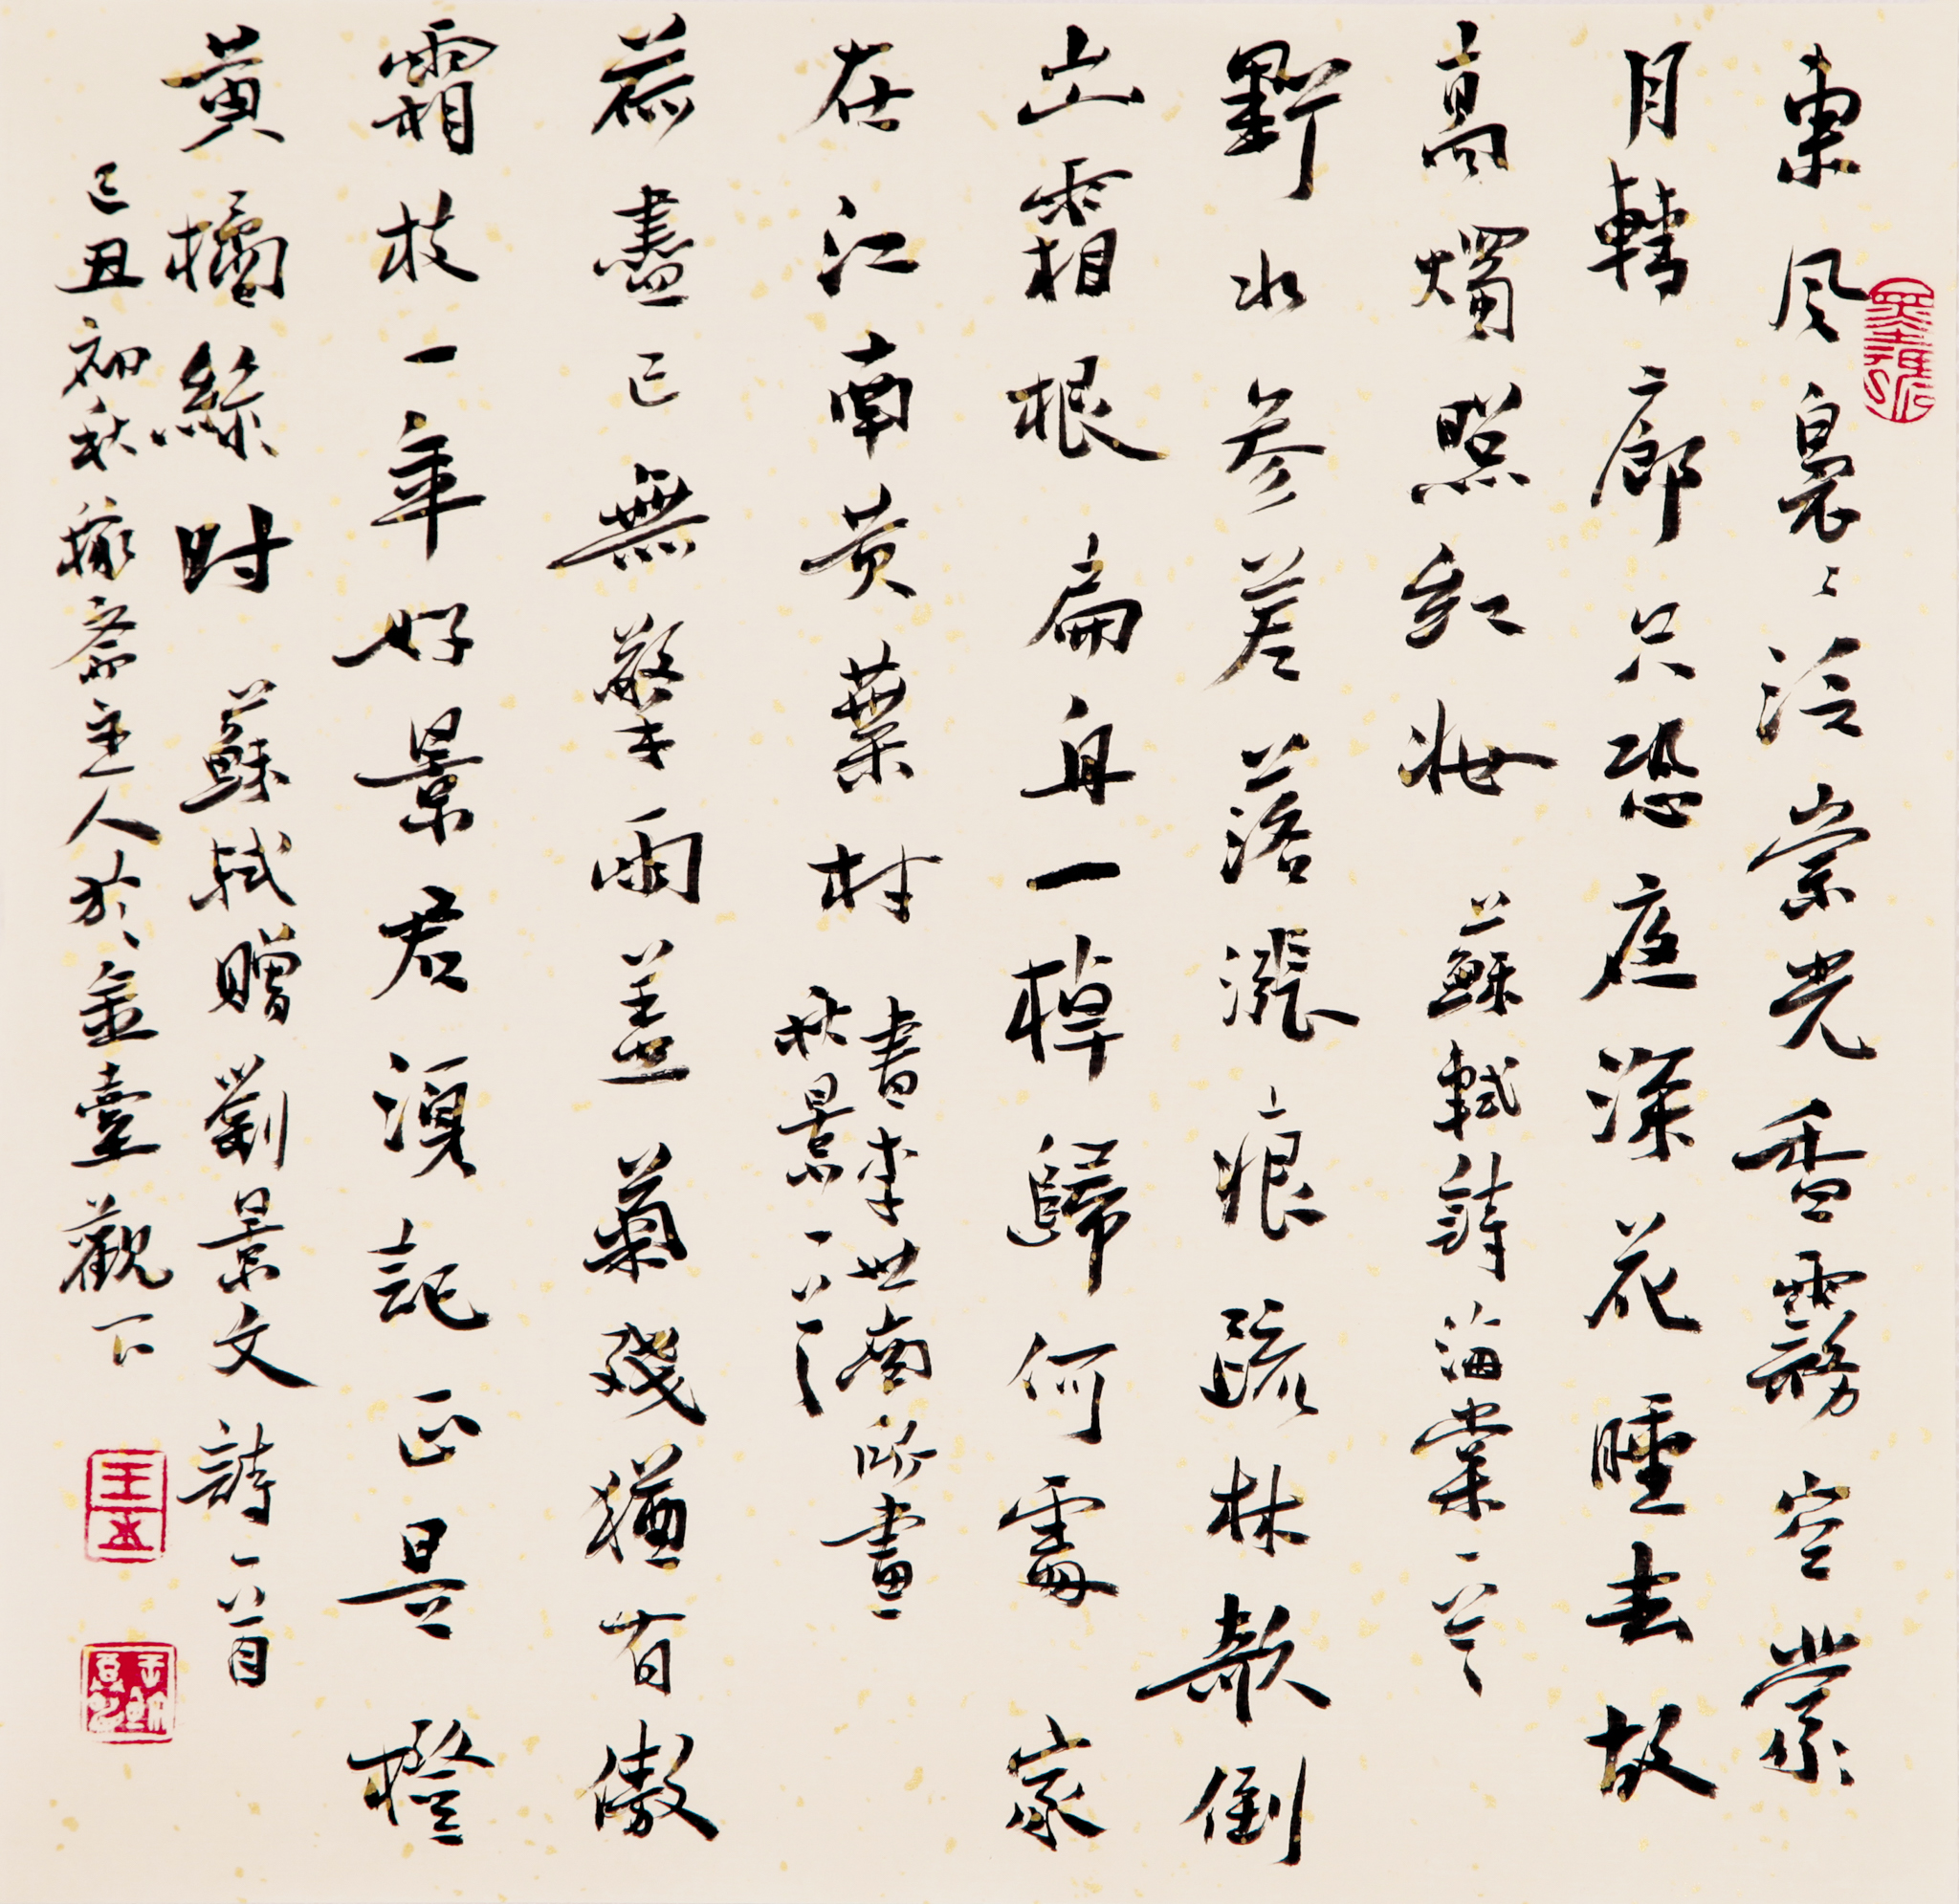 東风裊〻泛崇光香霧空蒙
月轉廊只恐庭深花睡去故
高燭照紅妝 蘇軾詩海棠一首
野水参差落漲痕疏林欹倒
出霜根扁舟一棹歸何處家
在江南黄葉村
書李世南所畫
秋景一首
荷盡已無擎雨盖菊殘猶有傲
霜枝一年好景君須記正是橙
黄橘綠时 蘇軾贈劉景文詩一首
己丑初秋稼齋主人於金臺觀下